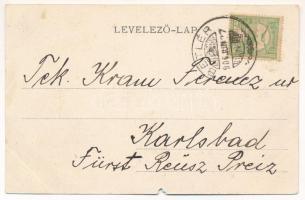 LEVELEZŐ-LAP
Tek. Kram Ferencz ur
Karlsbad
Fürst Reüsz Preiz